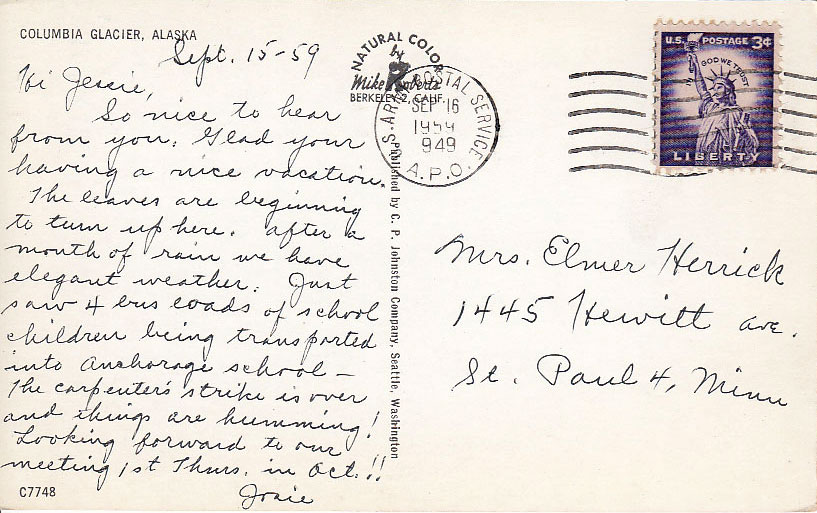 COLUMBIA GLACIER, ALASKA
Sept. 15-59
Hi Jessie,
So nice to hear
from you. Glad your
having a nice vacation.
The leaves are beginning
to turn up here. after a
month of rain we have
elegant weather. Just
saw 4 bus loads of school
children being transported
into Anchorage school —
The carpenter's strike is over
and things are humming!
Looking forward to our
meeting 1st Thurs. in Oct.!!
Josie
C7748
NATURAL COLOR
by
Mike Roberts
BERKELEY 2, CALIF.
Published by C. P. Johnston Company, Seattle, Washington
POSTAL SERVICE
SEP 16
1959
949
A.P.O.
U.S. POSTAGE 3¢
IN GOD WE TRUST
LIBERTY
Mrs. Elmer Herrick
1445 Hewitt ave.
St. Paul 4, Minn